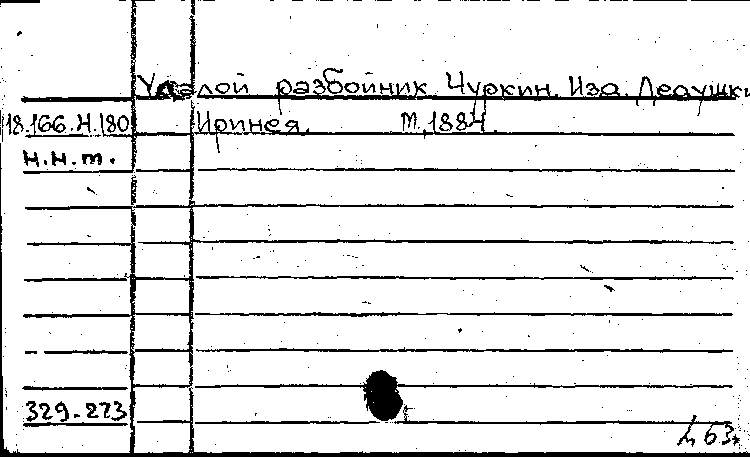 Удалой разбойник Чуркин. Изд. Дедушки
18.166.4.180 Иринея. М, 1884.
н.н.т.
329-273